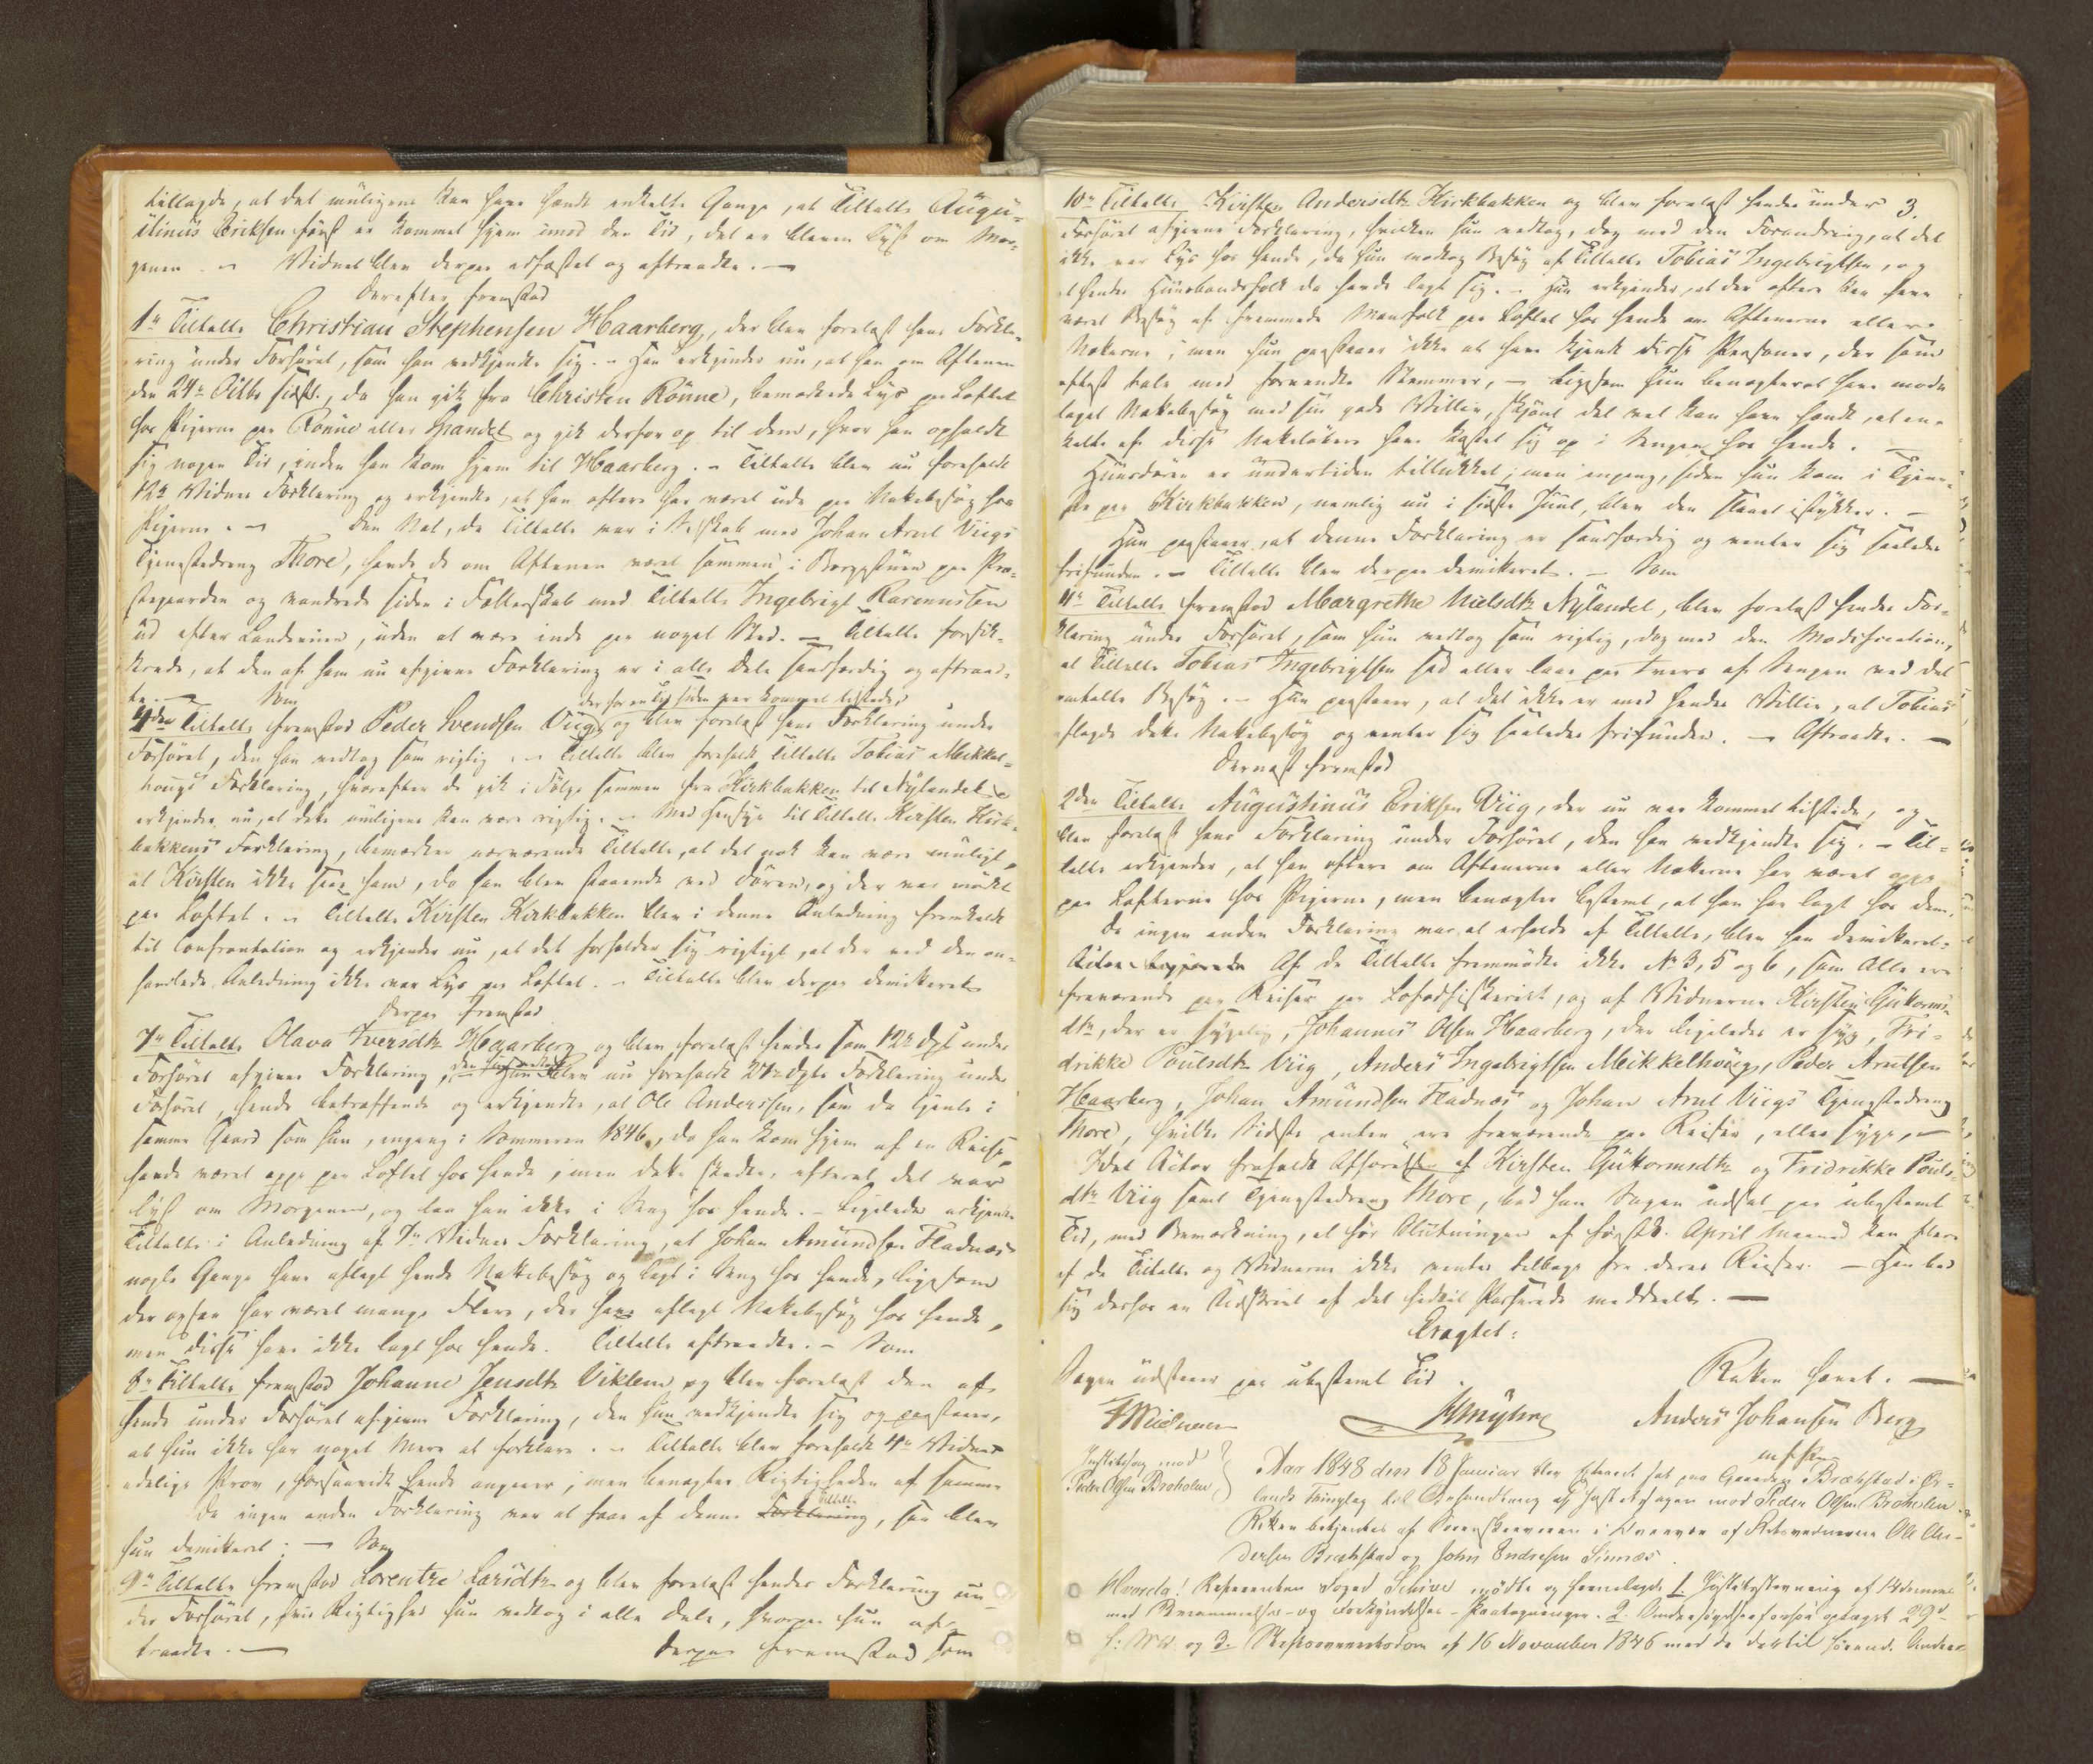 tillagde, at det muligens kan have hændt enkelte Gange, at Tiltalte Augu-
stinus Eriksen først er kommet hjem imod den Tid, det er bleven lyst om Mor-
genen. – Vidnet blev derpaa edfæstet og aftraadte. –
Derefter fremstod
1ste Tiltalte Christian Stephensen Haarberg, der blev forelæst hans Forkla-
ring under Forhøret, som han vedkjendte sig. – Han erkjender nu, at han om Aftenen
den 24de Octbr sidstl., da han gik fra Christen Rønne, bemærkede Lys paa Loftet
hos Pigerne paa Rønne eller Grandet og gik derfor op til dem, hvor han opholdt
sig nogen Tid, inden han kom hjem til Haarberg. – Tiltalte blev nu foreholdt
12te Vidnes Forklaring og erkjendte, at han oftere har været ude paa Nattebesøg hos
Pigerne. – Den Nat, da Tiltalte var i Selskab med Johan Arnt Viigs
Tjenestedreng Thore, havde de om Aftenen været sammen i Borgestuen paa Præ-
stegaarden og vandrede siden i Fællesskab med Tiltalte Ingebrigt Rasmussen
ud efter Landeveien, uden at være inde paa noget Sted. – Tiltalte forsik-
krede, at den af ham nu afgivne Forklaring er i alle Dele sandfærdig og aftraad-
te. – Som
der for en Tid siden var kommet tilstede,
4den Tiltalte fremstod Peder Svendsen Viig, og blev forelæst hans Forklaring under
Forhøret, den han vedtog som rigtig. – Tiltalte blev foreholdt Tiltalte Tobias Mekkel-
hougs Forklaring, hvorefter de gik i Følge sammen fra Kirkbakken til Nylandet og
erkjender nu, at dette muligens kan være rigtig. – Med Hensyn til Tiltalte Kirsten Kirk-
bakkens Forklaring, bemærker nærværende Tiltalte, at det nok kan være muligt,
at Kirsten ikke saae ham, da han blev staaende ved Døren, og der var mørkt
paa Loftet. – Tiltalte Kirsten Kirkbakken blev i denne Anledning fremkaldt
til Confrontation og erkjender nu, at det forholder sig rigtigt, at der ved den om-
handlede Anledning ikke var Lys paa Loftet. – Tiltalte blev derpaa demitteret.
Derpaa fremstod
7de Tiltalte Olava Iversdtr Haarberg og blev forelæst hendes som 12te Dpt under
Forhøret afgivne Forklaring, den hun vedtog. Hun blev nu foreholdt 21de Dpts Forklaring under
Forhøret, hende betræffende og erkjendte, at Ole Anderssen, som da tjente i
samme Gaard som hun, engang i Sommeren 1846, da han kom hjem af en Reise,
havde været oppe paa Loftet hos hende, men dette skedte, efterat det var
lyst om Morgenen, og laae han ikke i Seng hos hende. – Ligeledes erkjender
Tiltalte i Anledning af 7de Vidnes Forklaring, at Johan Amundsen Fladnæs
nogle Gange have aflagt hende Nattebesøg og lagt i Seng hos hende, ligesom
der ogsaa har været mange Flere, der have aflagt Nattebesøg hos hende,
men disse have ikke lagt hos hende. Tiltalte aftraadte. – Som
8de Tiltalte fremstod Johanne Jensdtr Viklem og blev forelæst den af
hende under Forhøret afgivne Forklaring, den hun vedkjendte sig og paastaaer,
at hun ikke har noget Mere at forklare. – Tiltalte blev foreholdt 4de Vidnes
edelige Prov, forsaavidt hende angaaer, men benægter Rigtigheden af samme.
Da ingen anden Forklaring var at faae af denne Forklaring Tiltalte, saa blev
hun demitteret. – Som
9de Tiltalte fremstod Lorentze Larsdtr og blev forelæst hendes Forklaring un-
der Forhøret, hvis Rigtighed hun vedtog i alle Dele, hvorpaa hun af-
traadte. – Derpaa fremstod som
3.
10de Tiltalte Kirsten Andersdtr Kirkbakken og blev forelæst hendes under
Forhøret afgivne Forklaring, hvilken hun vedtog, dog med den Forandring, at det
ikke var Lys hos hende, da hun modtog Besøg af Tiltalte Tobias Ingebrigtsen, og
at hendes Huusbondsfolk da havde lagt sig. – Hun erkjender, at der oftere kan have
været Besøg af fremmede Mandfolk paa Loftet hos hende om Aftenerne eller
Nætterne; men hun paastaaer ikke at have kjendt disse Personer, der som
oftest tale med forvendte Stemmer, – ligesom hun benægter at have mod-
taget Nattebesøg med sin gode Villie, skjønt det vel kan have hændt, at en-
kelte af disse Natteløbere have kastet sig op i Sengen hos hende. –
Huusdøren er undertiden tillukket; men engang, siden hun kom i Tjene-
ste paa Kirkbakken, nemlig nu i sidste Juul, blev den slaaet istykker. –
Hun paastaaer, at denne Forklaring er sandfærdig og venter sig saaledes
frifunden. – Tiltalte blev derpaa demitteret. – Som
11te Tiltalte fremstod Margrethe Nielsdtr Nylandet, blev forelæst hendes For-
klaring under Forhøret, som hun vedtog som rigtig, dog med den Modification,
at Tiltalte Tobias Ingebrigtsen sad eller laae paa tvers af Sengen ved det
omtalte Besøg. – Hun paastaaer, at det ikke er med hendes Villie, at Tobias
aflagde dette Nattebesøg og venter sig saaledes frifunden. – Aftraadte. –
Dernæst fremstod
2den Tiltalte Augustinus Eriksen Viig, der nu var kommet tilstede, og
blev forelæst hans Forklaring under Forhøret, den han vedkjendte sig. – Til-
talte erkjender, at han oftere om Aftenerne eller Nætterne har været oppe
paa Lofterne hos Pigerne, men benægter bestemt, at han har lagt hos dem.
Da ingen anden Forklaring var at erholde af Tiltalte, blev han demitteret.
Actor Af de Tiltalte fremmødte ikke No 3, 5 og 6, som Alle ere
fraværende paa Reiser paa Lofodfiskeriet, og af Vidnerne Kirsten Guttorms-
dtr, der er sygelig, Johannes Olsen Haarberg, der ligeledes er syg, Fri-
drikke Poulsdtr Viig, Anders Ingebrigtsen Meikkelhoug, Peder Arntsen
Haarberg, Johan Amundsen Fladnæs og Johan Arnt Viigs Tjenestedreng
Thore, hvilke Sidste enten ere fraværende paa Reiser, eller syge, –
Idet Actor frafaldt Afhørelse af Kirsten Guttormsdtr og Fridrikke Pouls-
dtr Viig samt Tjenestedreng Thore, bad han Sagen udsat paa ubestemt
Tid, med Bemærkning, at før Slutningen af førstk. April Maaned kan flere
af de Tiltalte og Vidnerne ikke ventes tilbage fra deres Reiser. – Han bad
sig derfor en Udskrivt af det hidtil Passerede meddeelt. –
Eragtet:
Sagen udstaaer paa ubestemt Tid. Retten hævet. –
Anders Johansen Berg
m. f. P.
Justitssag mod
Peder Olsen Broholm
Aar 1848 den 18 Januar blev Extraret sat paa Gaarden Brækstad i Ør-
lands Tinglag til Behandling af Justitssagen mod Peder Olsen Broholm
Retten betjentes af Sorenskriveren i Overvær af Retsvidnerne Ole An-
dersen Brækstad og John Endresen
Hvorda: Referenten Foged Schive mødte og fremlagde 1. Justitsstevning af 14 dennes
med Berammelses- og Forkyndelses-Paategninger. 2. Undersøgelsesforhør optaget 29d
f: M. og 3. af 16 November 1846 med de dertil hørende